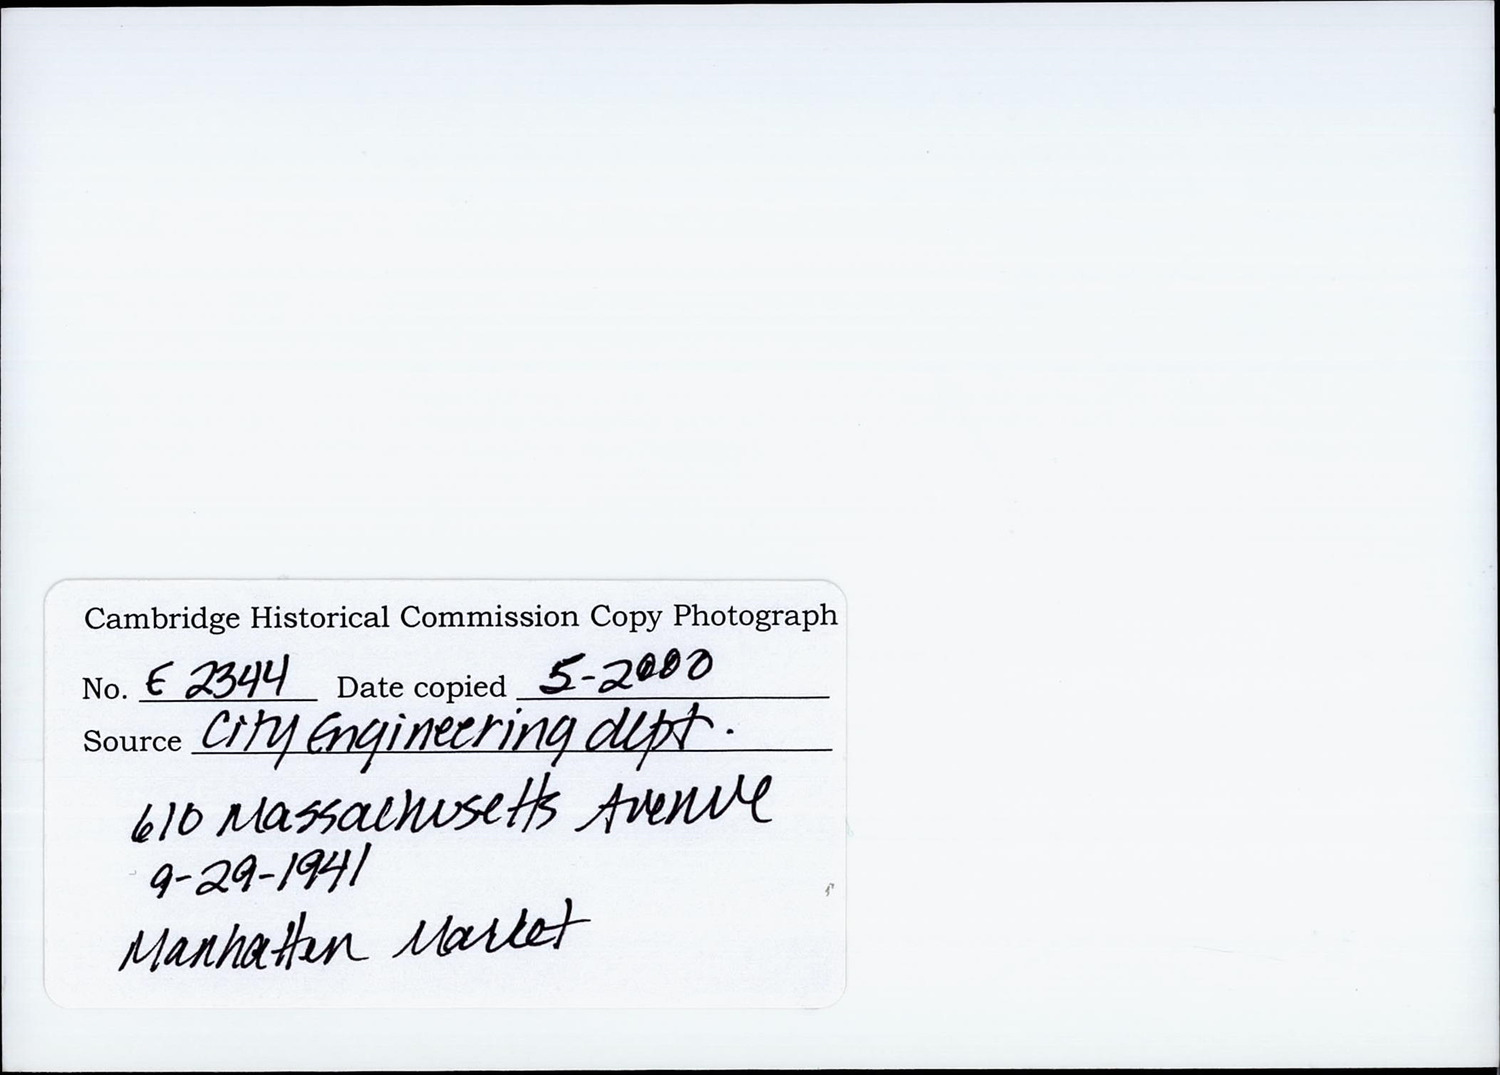 Cambridge Historical Commission Copy Photograph
No. E 2344 Date copied 5-2000
Source City Engineering dept.
610 Massachusetts Avenue
9-29-1941
Manhatten Market